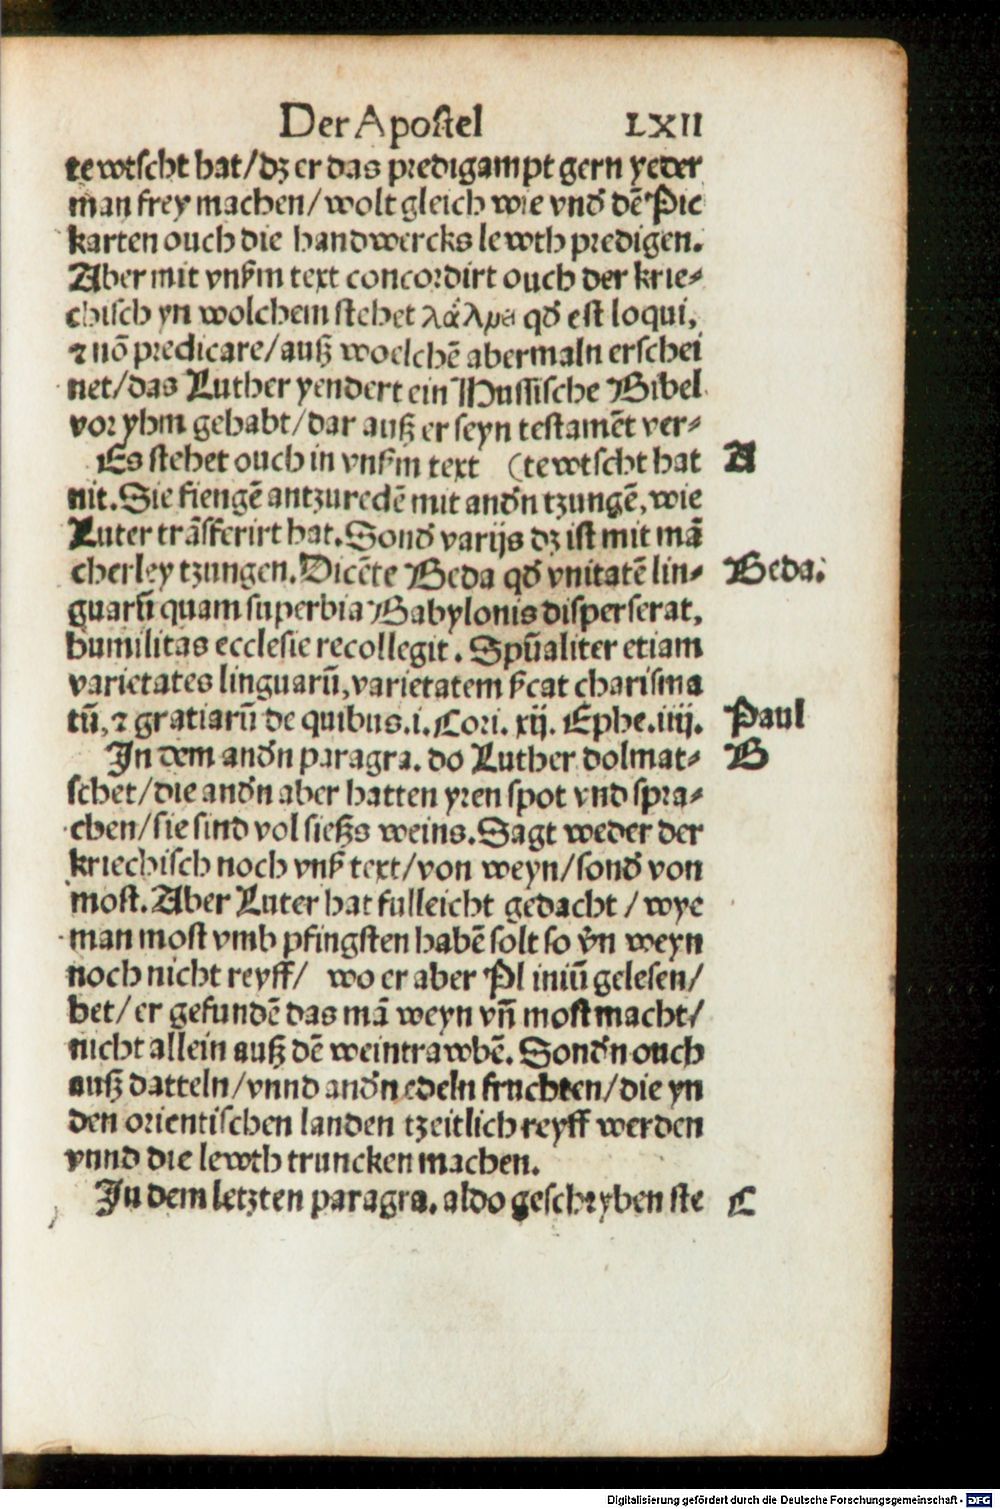 Der Apostel LXII
tewtscht hat/dz er das predigampt gern yeder
man frey machen/wolt gleich wie vnd͛ dē Pic
karten ouch die handwercks lewth predigen.
Aber mit vnſerm text concordirt ouch der krie⸗
chisch yn wolchem stehet qd͛ est loqui,
⁊ nō predicare/auß woelchē abermaln erschei
net/das Luther yendert ein Hussische Bibel
vor yhm gehabt/dar auß er seyn testamēt ver⸗
Es stehet ouch in vnſerm text (tewtscht hat A
nit. Sie fiengē antzuredē mit and͛n tzungē, wie
Luter trāsferirt hat. Sond͛ varijs dz ist mit mā
cherley tzungen. Dicēte Beda qd͛ vnitatē lin⸗ Beda.
guarū quam superbia Babylonis disperserat,
humilitas ecclesie recollegit. Spūaliter etiam
varietates linguarū, varietatem ſcat charisma
tū, ⁊ gratiarū de quibus .i. Cori. xij. Ephe. iiij. Paul
In dem and͛n paragra. do Luther dolmat⸗ B
schet/die and͛n aber hatten yren spot vnd spra⸗
chen/sie sind vol sießs weins. Sagt weder der
kriechisch noch vnſ text/von weyn/sond͛ von
most. Aber Luter hat fulleicht gedacht / wye
man most vmb pfingsten habē solt so d͛n weyn
noch nicht reyff/ wo er aber Pliniū gelesen/
het/ er gefundē das mā weyn vn̄ most macht/
nicht allein auß dē weintrawbē. Sond͛n ouch
auß datteln/vnnd and͛n edeln fruchten/die yn
den orientischen landen tzeitlich reyff werden
vnnd die lewth truncken machen.
In dem letzten paragra. aldo geschryben ste C
Digitalisierung gefördert durch die Deutsche Forschungsgemeinschaft - DFG